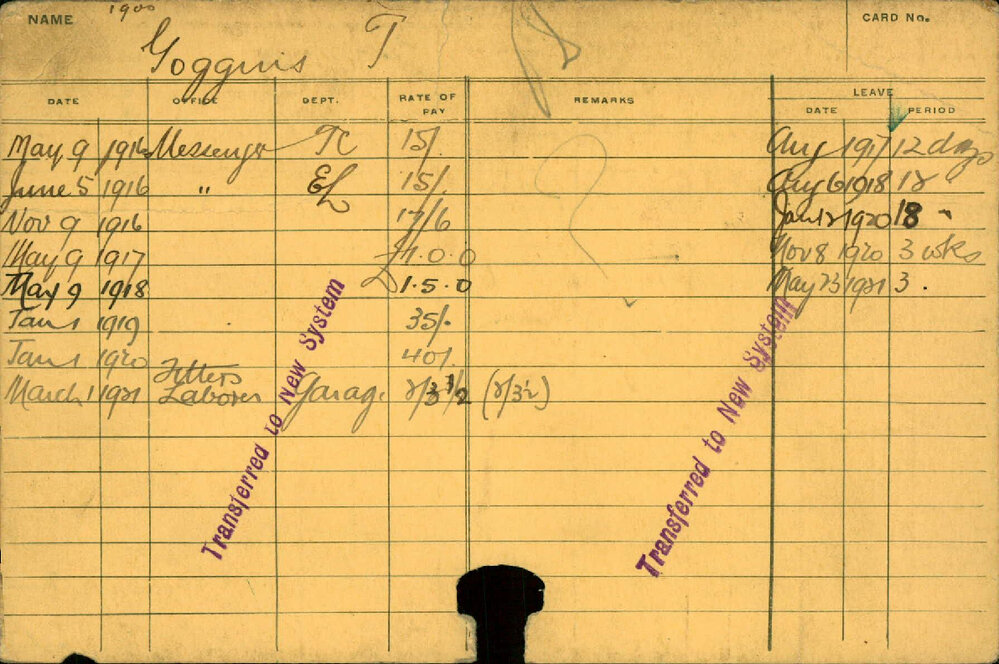 NAME 1900 CARD No.
Goggins T
DATE OFFICE DEPT. RATE OF PAY REMARKS LEAVE
DATE PERIOD
May 9 1916 Messenger TC 15/. Aug 1917 12 days
June 5 1916 " EL 15/. Aug 6 1918 12
Nov 9 1916 17/6 Jan 12 1920 18 "
May 9 1917 £1.0.0 Nov 8 1920 3 wks
May 9 1918 £1.5.0 May 23 1921 3 .
Jan 1 1919 35/.
Jan 1 1920 40/.
March 1 1921 Fitters Laborer Garage 2/3½ (2/3½)
Transferred to New System
Transferred to New System